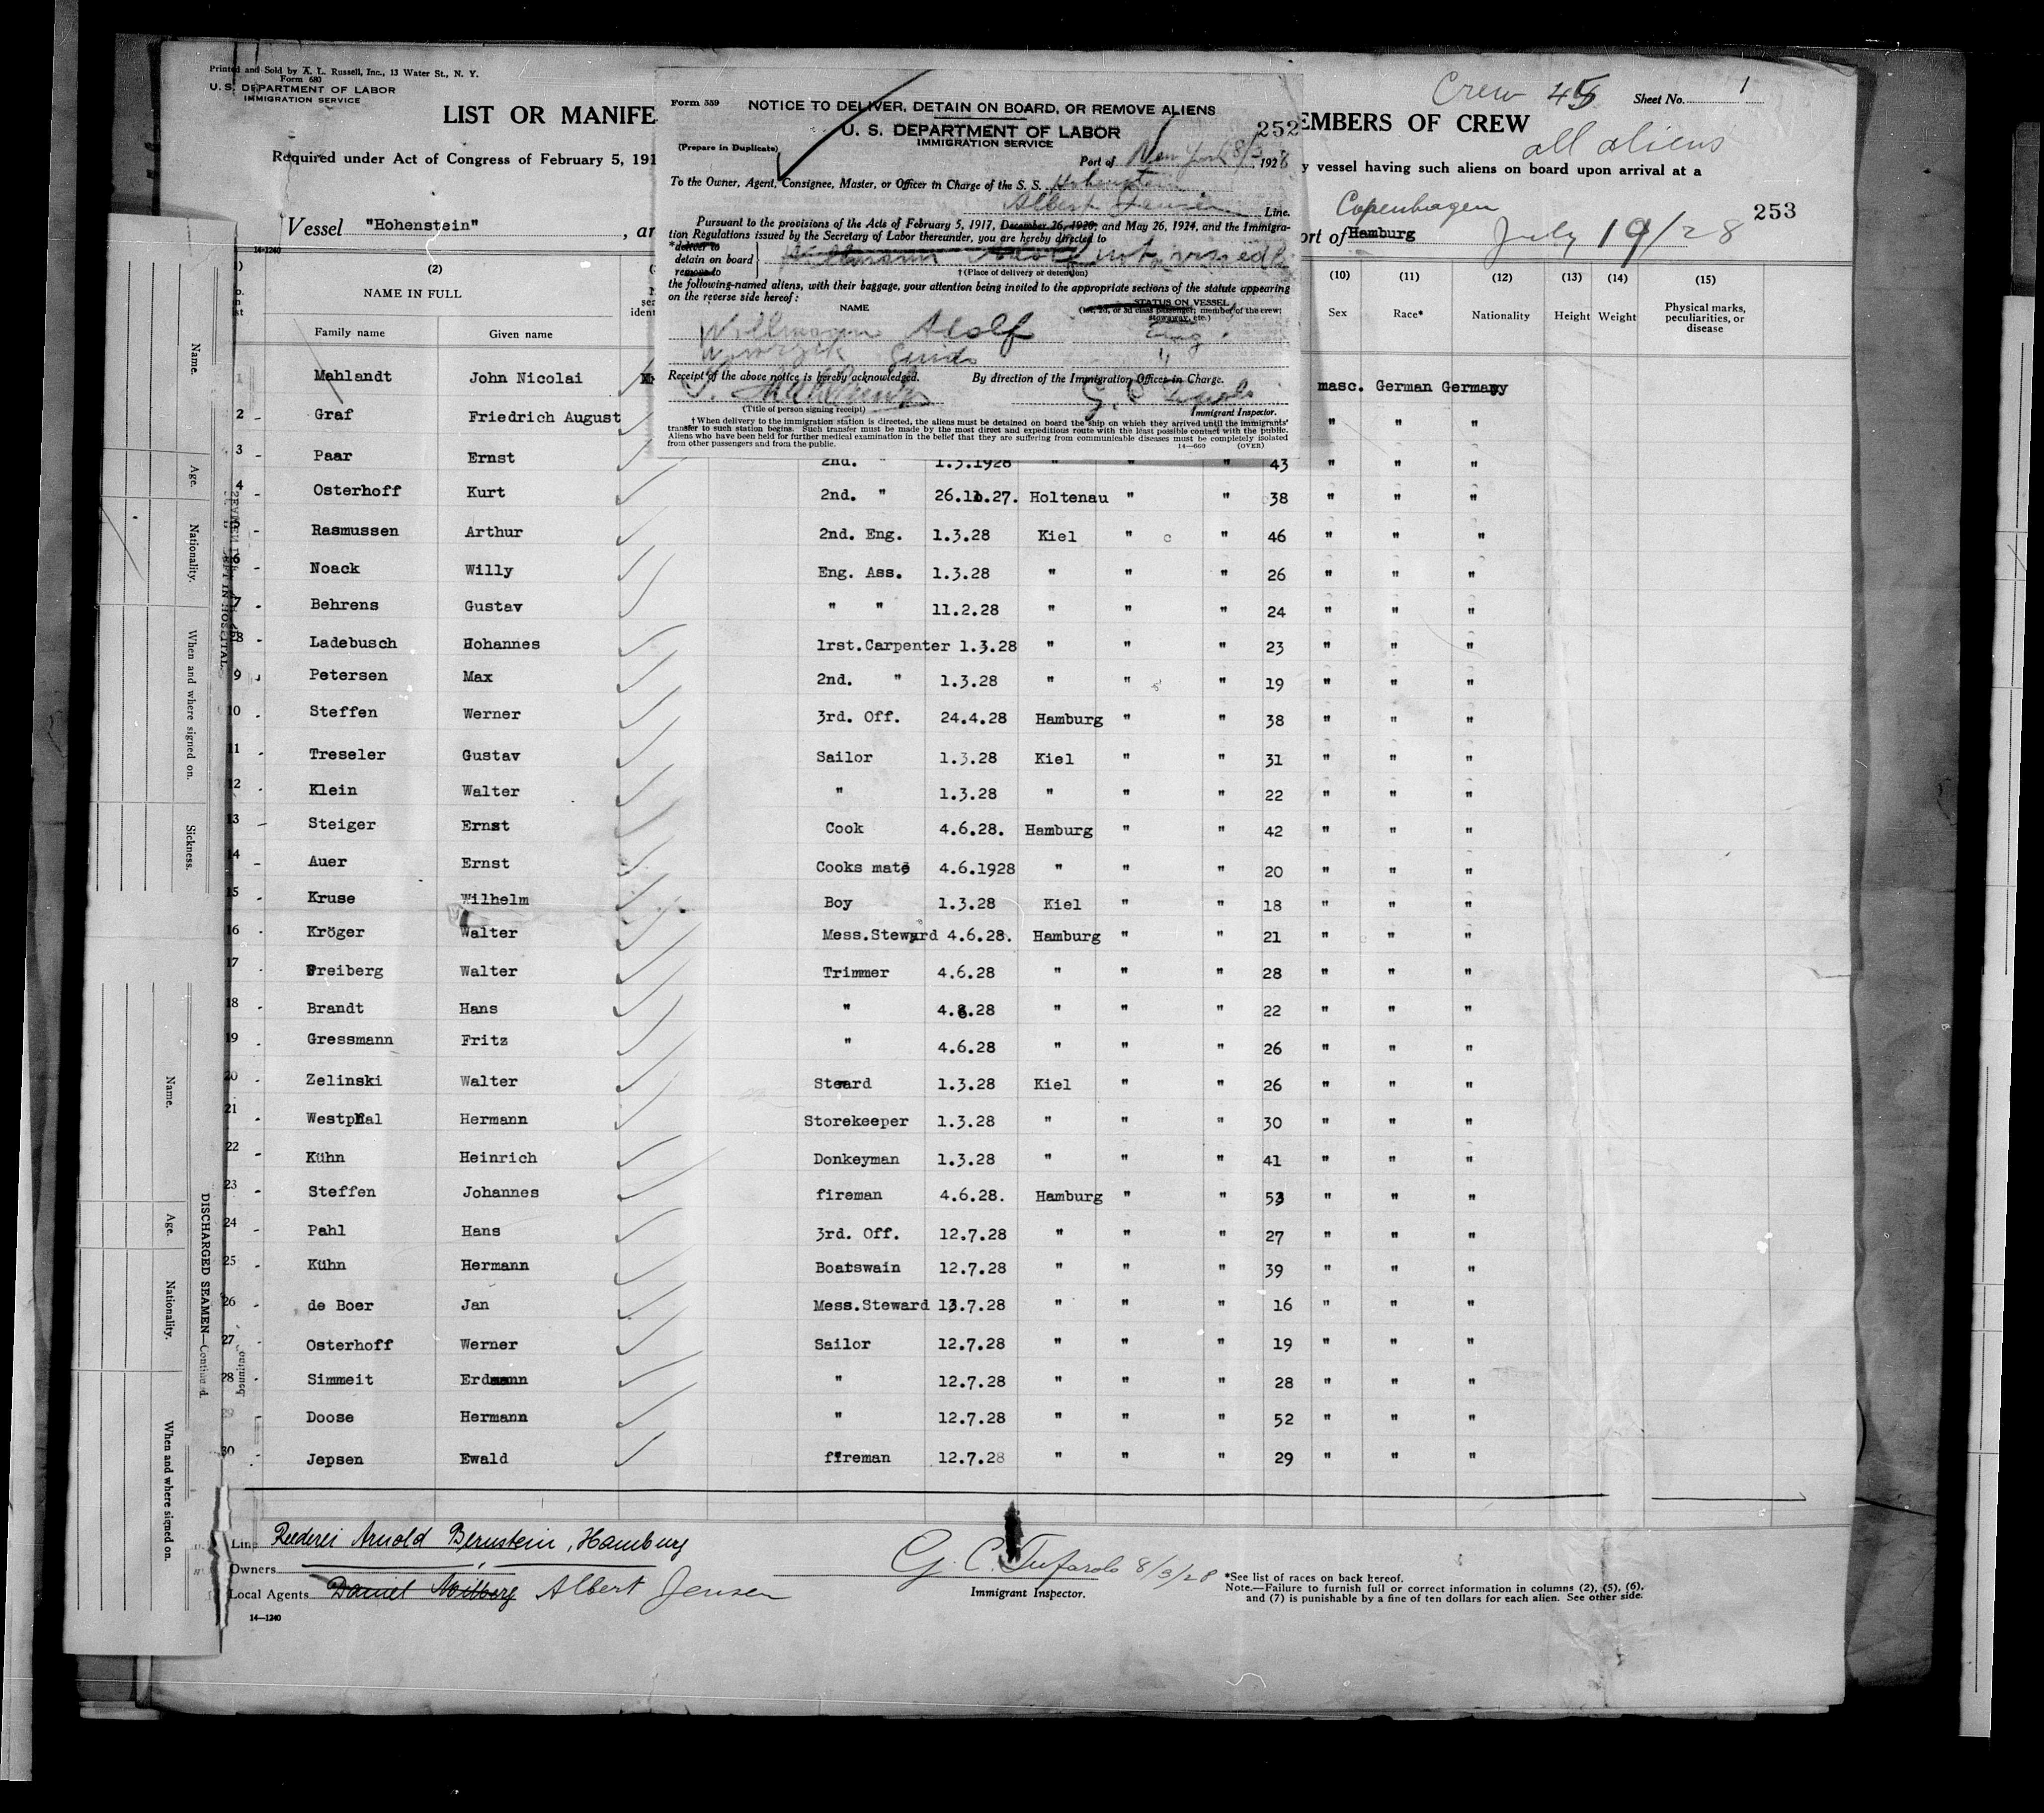 Printed and Sold by A. L. Russell, Inc., 13 Water St., N. Y.
Form 680
U. S. DEPARTMENT OF LABOR
IMMIGRATION SERVICE
LIST OR MANIFE
EMBERS OF CREW
Crew 45
Sheet No. 1
all aliens
Required under Act of Congress of February 5, 191
y vessel having such aliens on board upon arrival at a
Vessel "Hohenstein" , ar
ort of Hamburg
Copenhagen
July 19/28
253
Form 559
NOTICE TO DELIVER, DETAIN ON BOARD, OR REMOVE ALIENS
U. S. DEPARTMENT OF LABOR
252
IMMIGRATION SERVICE
(Prepare in Duplicate)
Port of New York 8/3 1928
To the Owner, Agent, Consignee, Master, or Officer in Charge of the S. S. Hohenstein
Albert Jensen Line.
Pursuant to the provisions of the Acts of February 5, 1917, December 26, 1920, and May 26, 1924, and the Immigra-
tion Regulations issued by the Secretary of Labor thereunder, you are hereby directed to
*deliver to
detain on board
remove to
† (Place of delivery or detention)
the following-named aliens, with their baggage, your attention being invited to the appropriate sections of the statute appearing
on the reverse side hereof:
NAME
STATUS ON VESSEL
(1st, 2d, or 3d class passenger; member of the crew;
stowaway, etc.)
Willmann Adolf Eng.
Guido "
Receipt of the above notice is hereby acknowledged.
By direction of the Immigration Officer in Charge.
(Title of person signing receipt)
Immigrant Inspector.
† When delivery to the immigration station is directed, the aliens must be detained on board the ship on which they arrived until the immigrants'
transfer to such station begins. Such transfer must be made by the most direct and expeditious route with the least possible contact with the public.
Aliens who have been held for further medical examination in the belief that they are suffering from communicable diseases must be completely isolated
from other passengers and from the public.
14—660 (OVER)
14-1240
(2) (10) (11) (12) (13) (14) (15)
NAME IN FULL
Family name Given name
Sex Race* Nationality Height Weight Physical marks, peculiarities, or disease
1 Mahlandt John Nicolai masc. German Germany
2 Graf Friedrich August " " "
3 Paar Ernst 2nd. " 1.3.1928 " " " 43 " " "
4 Osterhoff Kurt 2nd. " 26.11.27. Holtenau " " 38 " " "
5 Rasmussen Arthur 2nd. Eng. 1.3.28 Kiel " " 46 " " "
6 Noack Willy Eng. Ass. 1.3.28 " " " 26 " " "
7 Behrens Gustav " " 11.2.28 " " " 24 " " "
8 Ladebusch Hohannes 1rst.Carpenter 1.3.28 " " " 23 " " "
9 Petersen Max 2nd. " 1.3.28 " " " 19 " " "
10 Steffen Werner 3rd. Off. 24.4.28 Hamburg " " 38 " " "
11 Treseler Gustav Sailor 1.3.28 Kiel " " 31 " " "
12 Klein Walter " 1.3.28 " " " 22 " " "
13 Steiger Ernst Cook 4.6.28. Hamburg " " 42 " " "
14 Auer Ernst Cooks mate 4.6.1928 " " " 20 " " "
15 Kruse Wilhelm Boy 1.3.28 Kiel " " 18 " " "
16 Kröger Walter Mess.Steward 4.6.28. Hamburg " " 21 " " "
17 Freiberg Walter Trimmer 4.6.28 " " " 28 " " "
18 Brandt Hans " 4.6.28 " " " 22 " " "
19 Gressmann Fritz " 4.6.28 " " " 26 " " "
20 Zelinski Walter Steard 1.3.28 Kiel " " 26 " " "
21 Westphal Hermann Storekeeper 1.3.28 " " " 30 " " "
22 Kühn Heinrich Donkeyman 1.3.28 " " " 41 " " "
23 Steffen Johannes fireman 4.6.28. Hamburg " " 53 " " "
24 Pahl Hans 3rd. Off. 12.7.28 " " " 27 " " "
25 Kühn Hermann Boatswain 12.7.28 " " " 39 " " "
26 de Boer Jan Mess.Steward 13.7.28 " " " 16 " " "
27 Osterhoff Werner Sailor 12.7.28 " " " 19 " " "
28 Simmeit Erdmann " 12.7.28 " " " 28 " " "
29 Doose Hermann " 12.7.28 " " " 52 " " "
30 Jepsen Ewald fireman 12.7.28 " " " 29 " " "
Line Reederei Arnold Bernstein, Hamburg
Owners
Local Agents Daniel Albert Jensen
14—1240
G. C. Tufarolo 8/3/28
Immigrant Inspector.
*See list of races on back hereof.
Note.—Failure to furnish full or correct information in columns (2), (5), (6),
and (7) is punishable by a fine of ten dollars for each alien. See other side.
Name.
Age.
Nationality.
When and where signed on.
Sickness.
SEAMEN LEFT IN HOSPITAL.
DISCHARGED SEAMEN—Continued.
Name.
Age.
Nationality.
When and where signed on.